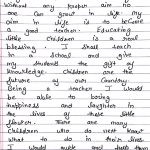 Without any proper aim no
one can great in life. My
aim in life is to become
a good teacher. Educating
little children is a real
blessing I shall teach
in school and give
my students the gift of
knowledge. Children are the
future of our country.
Being a teacher I would
be able to bring
happiness and laughter in
the lives of these little
There are many
children who do not know
what to do in their lives.
I would guide and help them